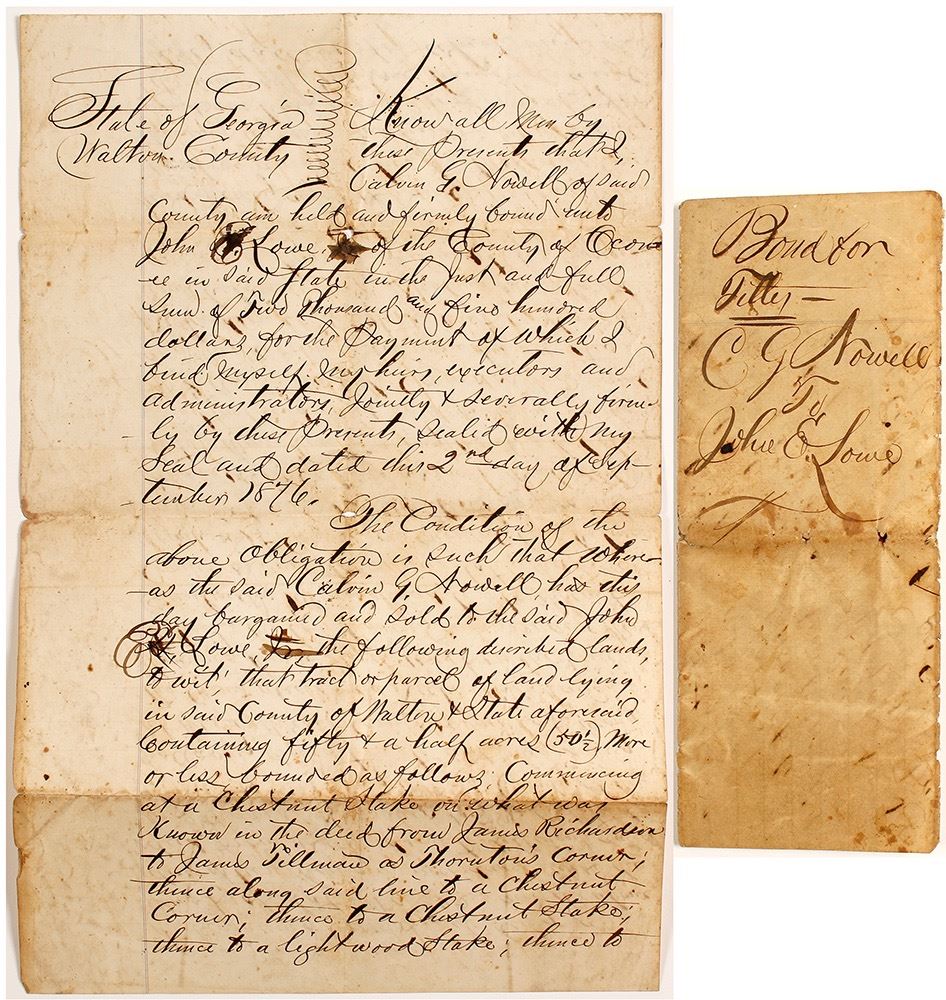 State of Georgia
Walton County
Know all Men by
these Presents that I,
Calvin G. Nowell of said
County am held and firmly bound unto
John E. Lowe, of the County of Ocon-
ee in said State in the Just and full
sum of Two Thousand and five hundred
dollars, for the Payment of which I
bind myself, my heirs, executors and
administrators, Jointly & severally firm-
ly by these Presents, sealed with my
Seal and dated this 2nd day of Sep-
tember 1876.
The Condition of the
above Obligation is such that where-
as the said Calvin G. Nowell, has this
day bargained and sold to the said John
E. Lowe, the following discribed lands,
to wit; that tract or parcel of land lying
in said County of Walton & State aforesaid,
Containing fifty & a half acres (50½) More
or less, bounded as follows; Commencing
at a Chestnut Stake on what was
Known in the deed from James Richardson
to James Tillman as Thornton's Corner;
thence along said line to a Chestnut
Corner; thence to a Chestnut Stake;
thence to a lightwood Stake; thence to
Bond for
Titles —
C G Nowell
To
John E. Lowe